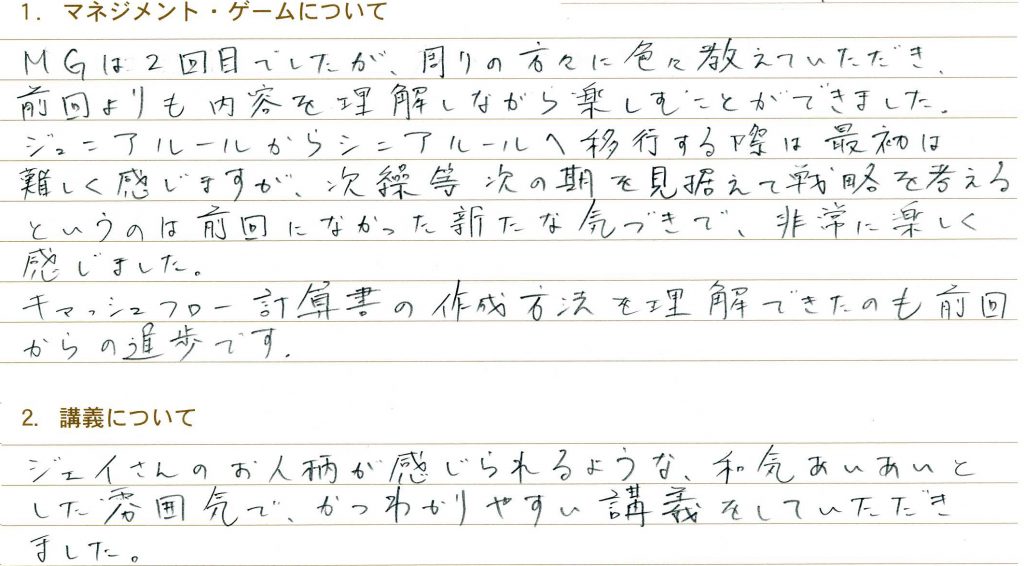 1. マネジメント・ゲームについて
MGは2回目でしたが、周りの方々に色々教えていただき、
前回よりも内容を理解しながら楽しむことができました。
ジュニアルールからシニアルールへ移行する際は最初は
難しく感じますが、次繰等次の期を見据えて戦略を考える
というのは前回になかった新たな気づきで、非常に楽しく
感じました。
キャッシュフロー計算書の作成方法を理解できたのも前回
からの進歩です。
2. 講義について
ジェイさんのお人柄が感じられるような、和気あいあいと
した雰囲気で、かつわかりやすい講義をしていただき
ました。